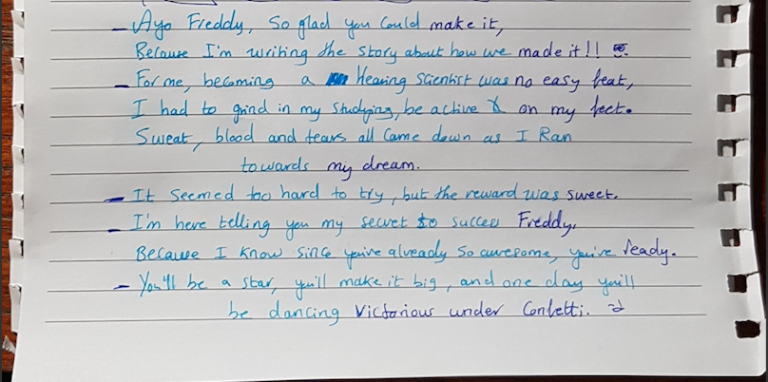 - Ayo Freddy, So glad you could make it,
Because I'm writing the story about how we made it!!
- For me, becoming a Hearing Scientist was no easy feat,
I had to grind in my studying, be active & on my feet.
Sweat, blood and tears all came down as I Ran
towards my dream.
- It seemed too hard to try, but the reward was sweet.
- I'm here telling you my secret to success Freddy,
Because I know since you're already so awesome, you're ready.
- You'll be a star, you'll make it big, and one day you'll
be dancing Victorious under Confetti. :)